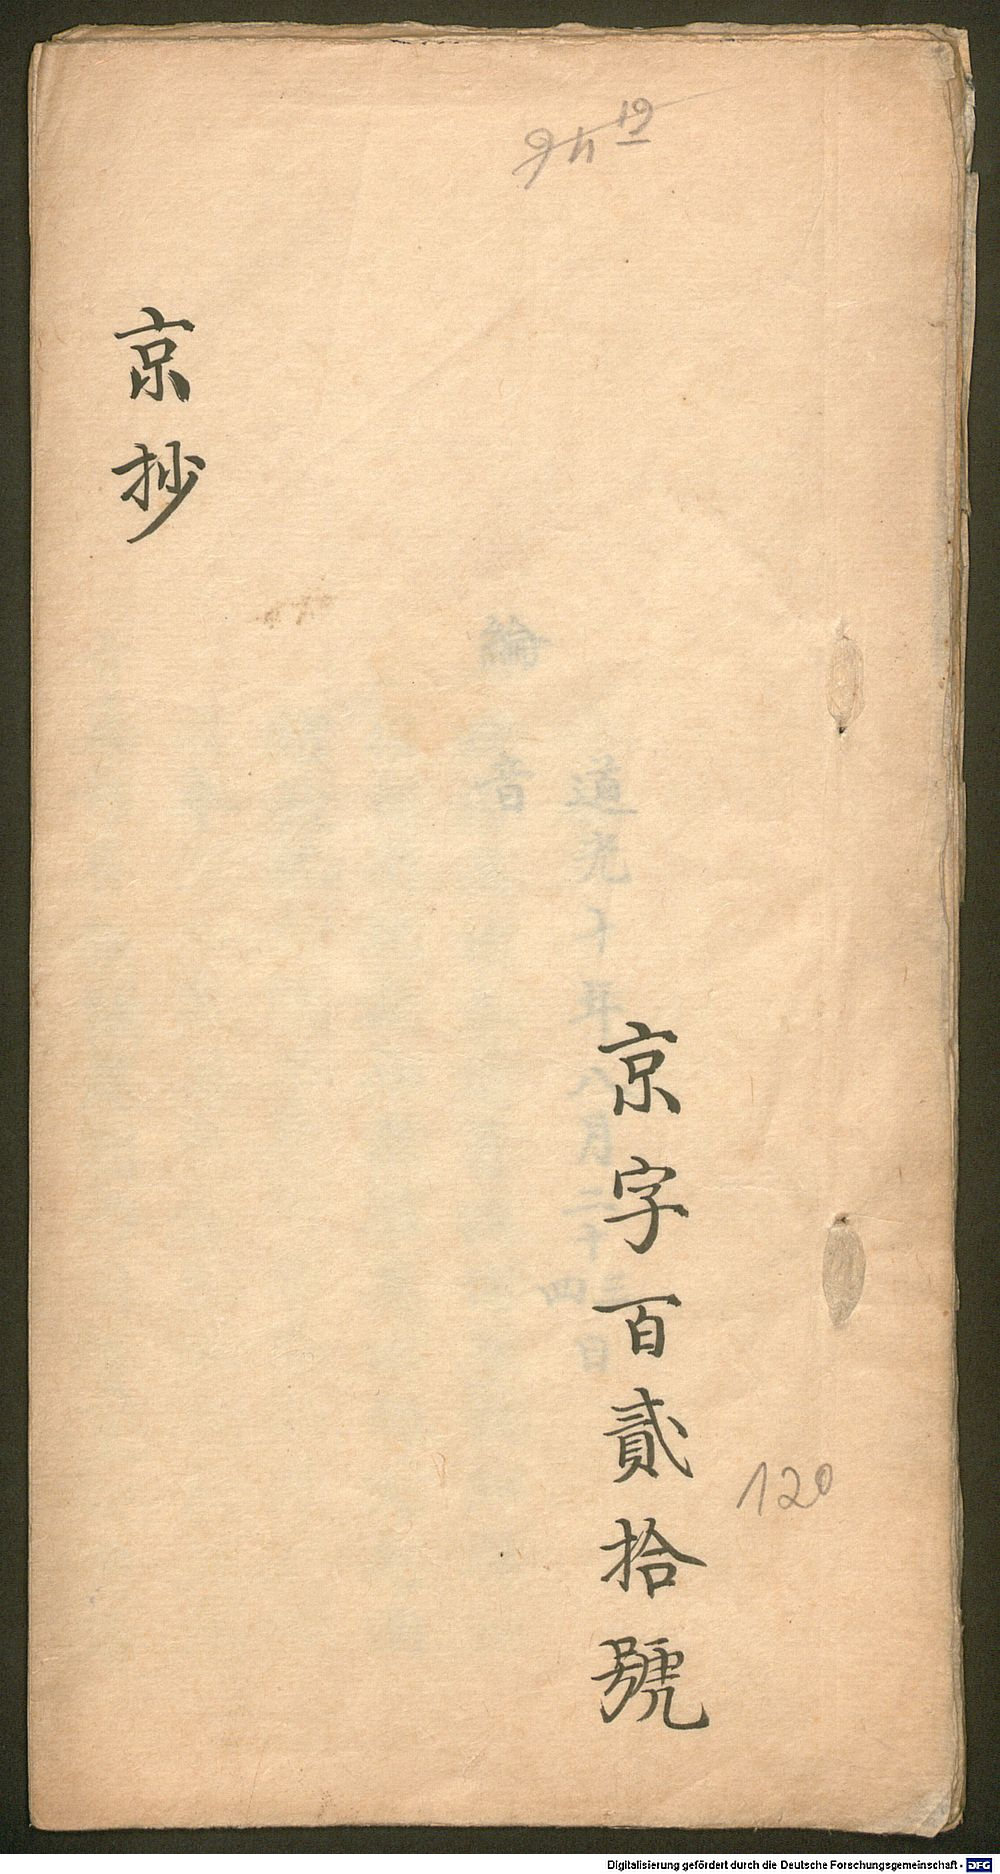 19
京字百貳拾號
120
京抄
綸音
道光十年八月二十
三
四
日
Digitalisierung gefördert durch die Deutsche Forschungsgemeinschaft - DFG